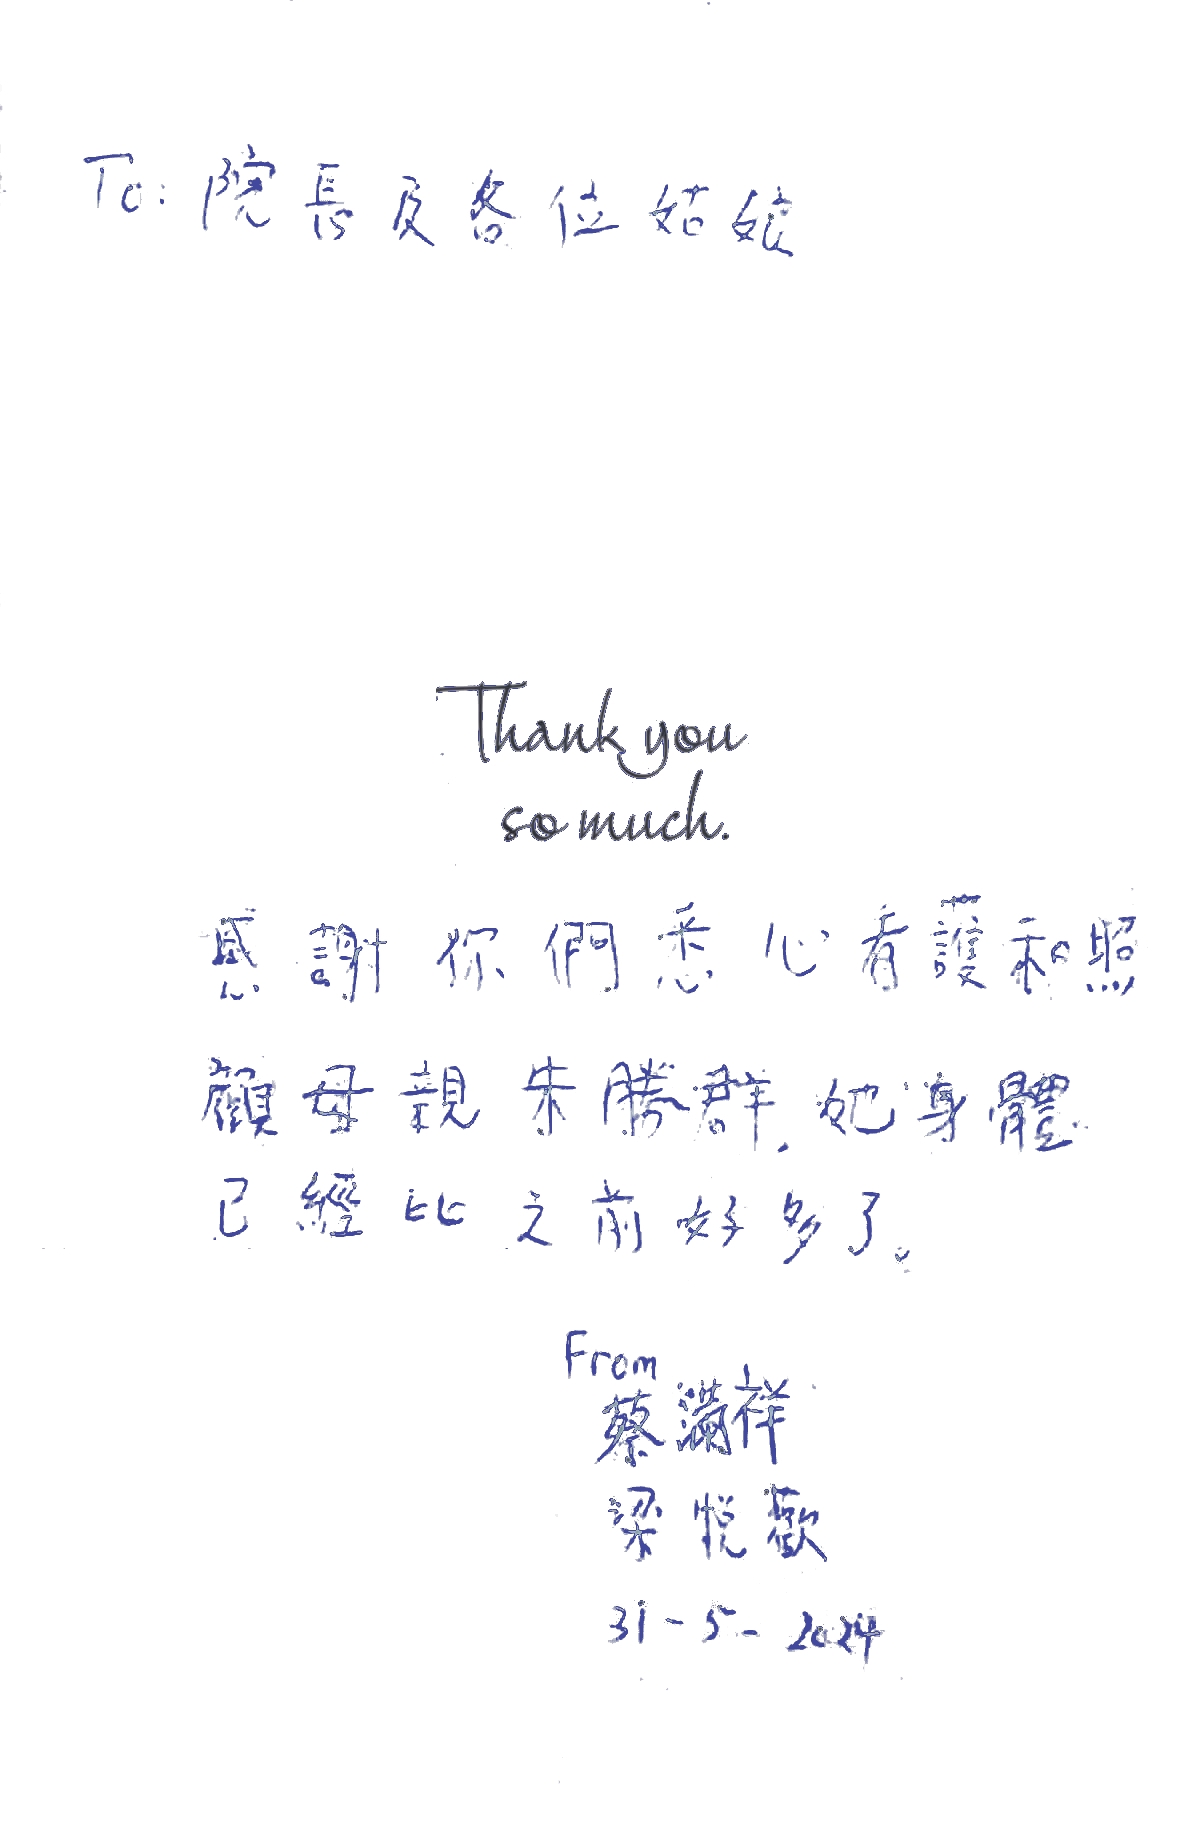 To: 院長及各位姑娘
Thank you
so much.
感謝你們悉心看護和照
顧母親朱勝群, 她身體
已經比之前好多了。
From
蔡滿祥
梁悅歡
31-5-2024